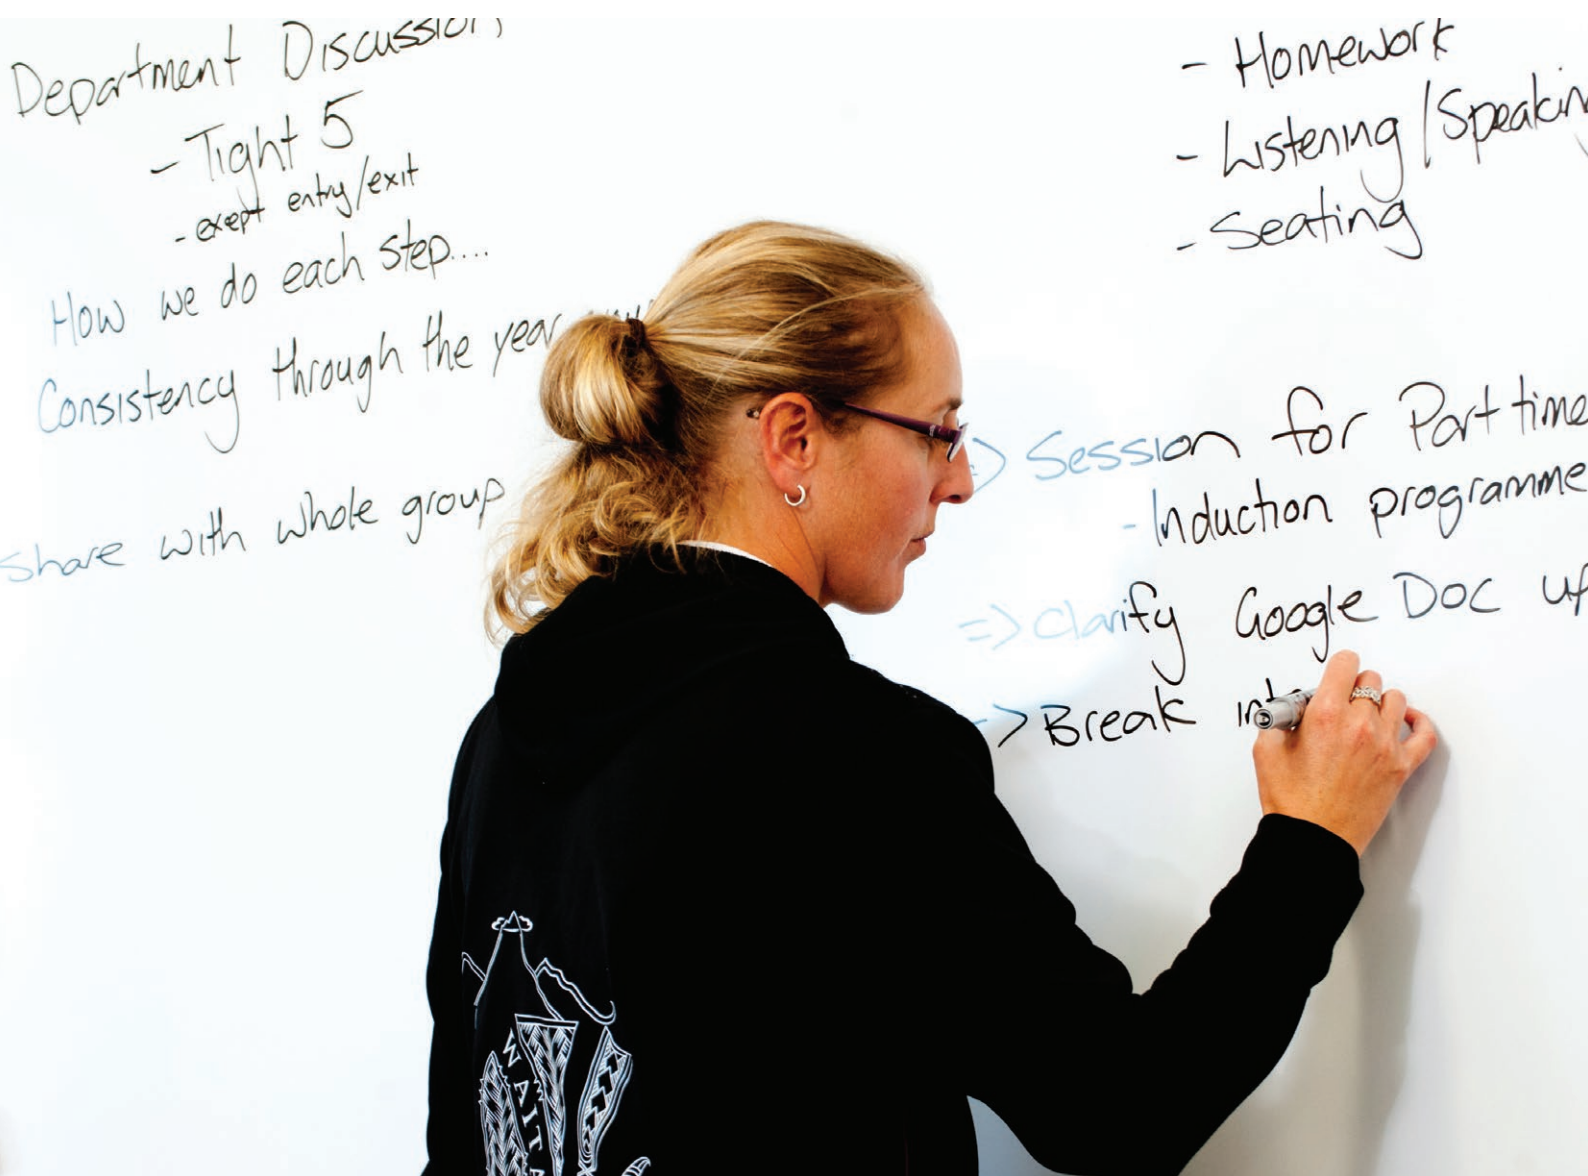 Department Discussion
- Tight 5
- exept entry/exit
How we do each step....
Consistency through the year
share with whole group
- Homework
- Listening/Speakin
- Seating
=> Session for Part time
- Induction programme
=> Clarify Google Doc up
=> Break into
WAITA